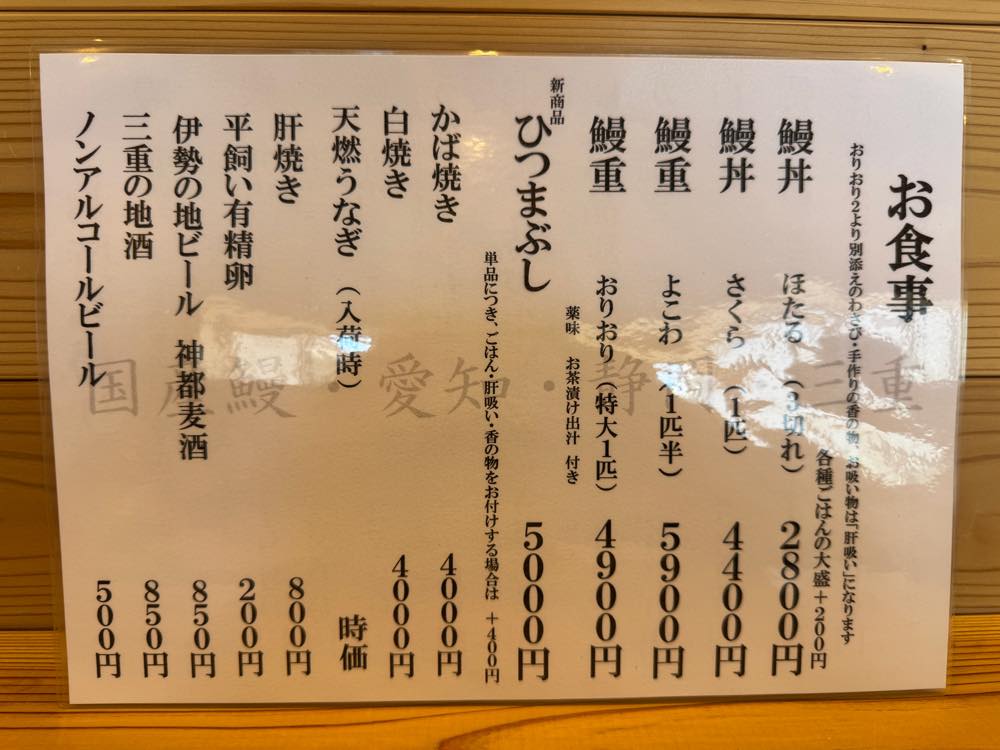 お食事
おりおり2より別添えのわさび・手作りの香の物、お吸い物は「肝吸い」になります
各種ごはんの大盛+200円
鰻丼 ほたる (3切れ) 2800円
鰻丼 さくら (1匹) 4400円
鰻重 よこわ (1匹半) 5900円
鰻重 おりおり(特大1匹) 4900円
薬味 お茶漬け出汁 付き
新商品
ひつまぶし 5000円
単品につき、ごはん・肝吸い・香の物をお付けする場合は +400円
かば焼き 4000円
白焼き 4000円
天燃うなぎ (入荷時) 時価
肝焼き 800円
平飼い有精卵 200円
伊勢の地ビール 神都麦酒 850円
三重の地酒 850円
ノンアルコールビール 500円
国産鰻・愛知・静岡・三重